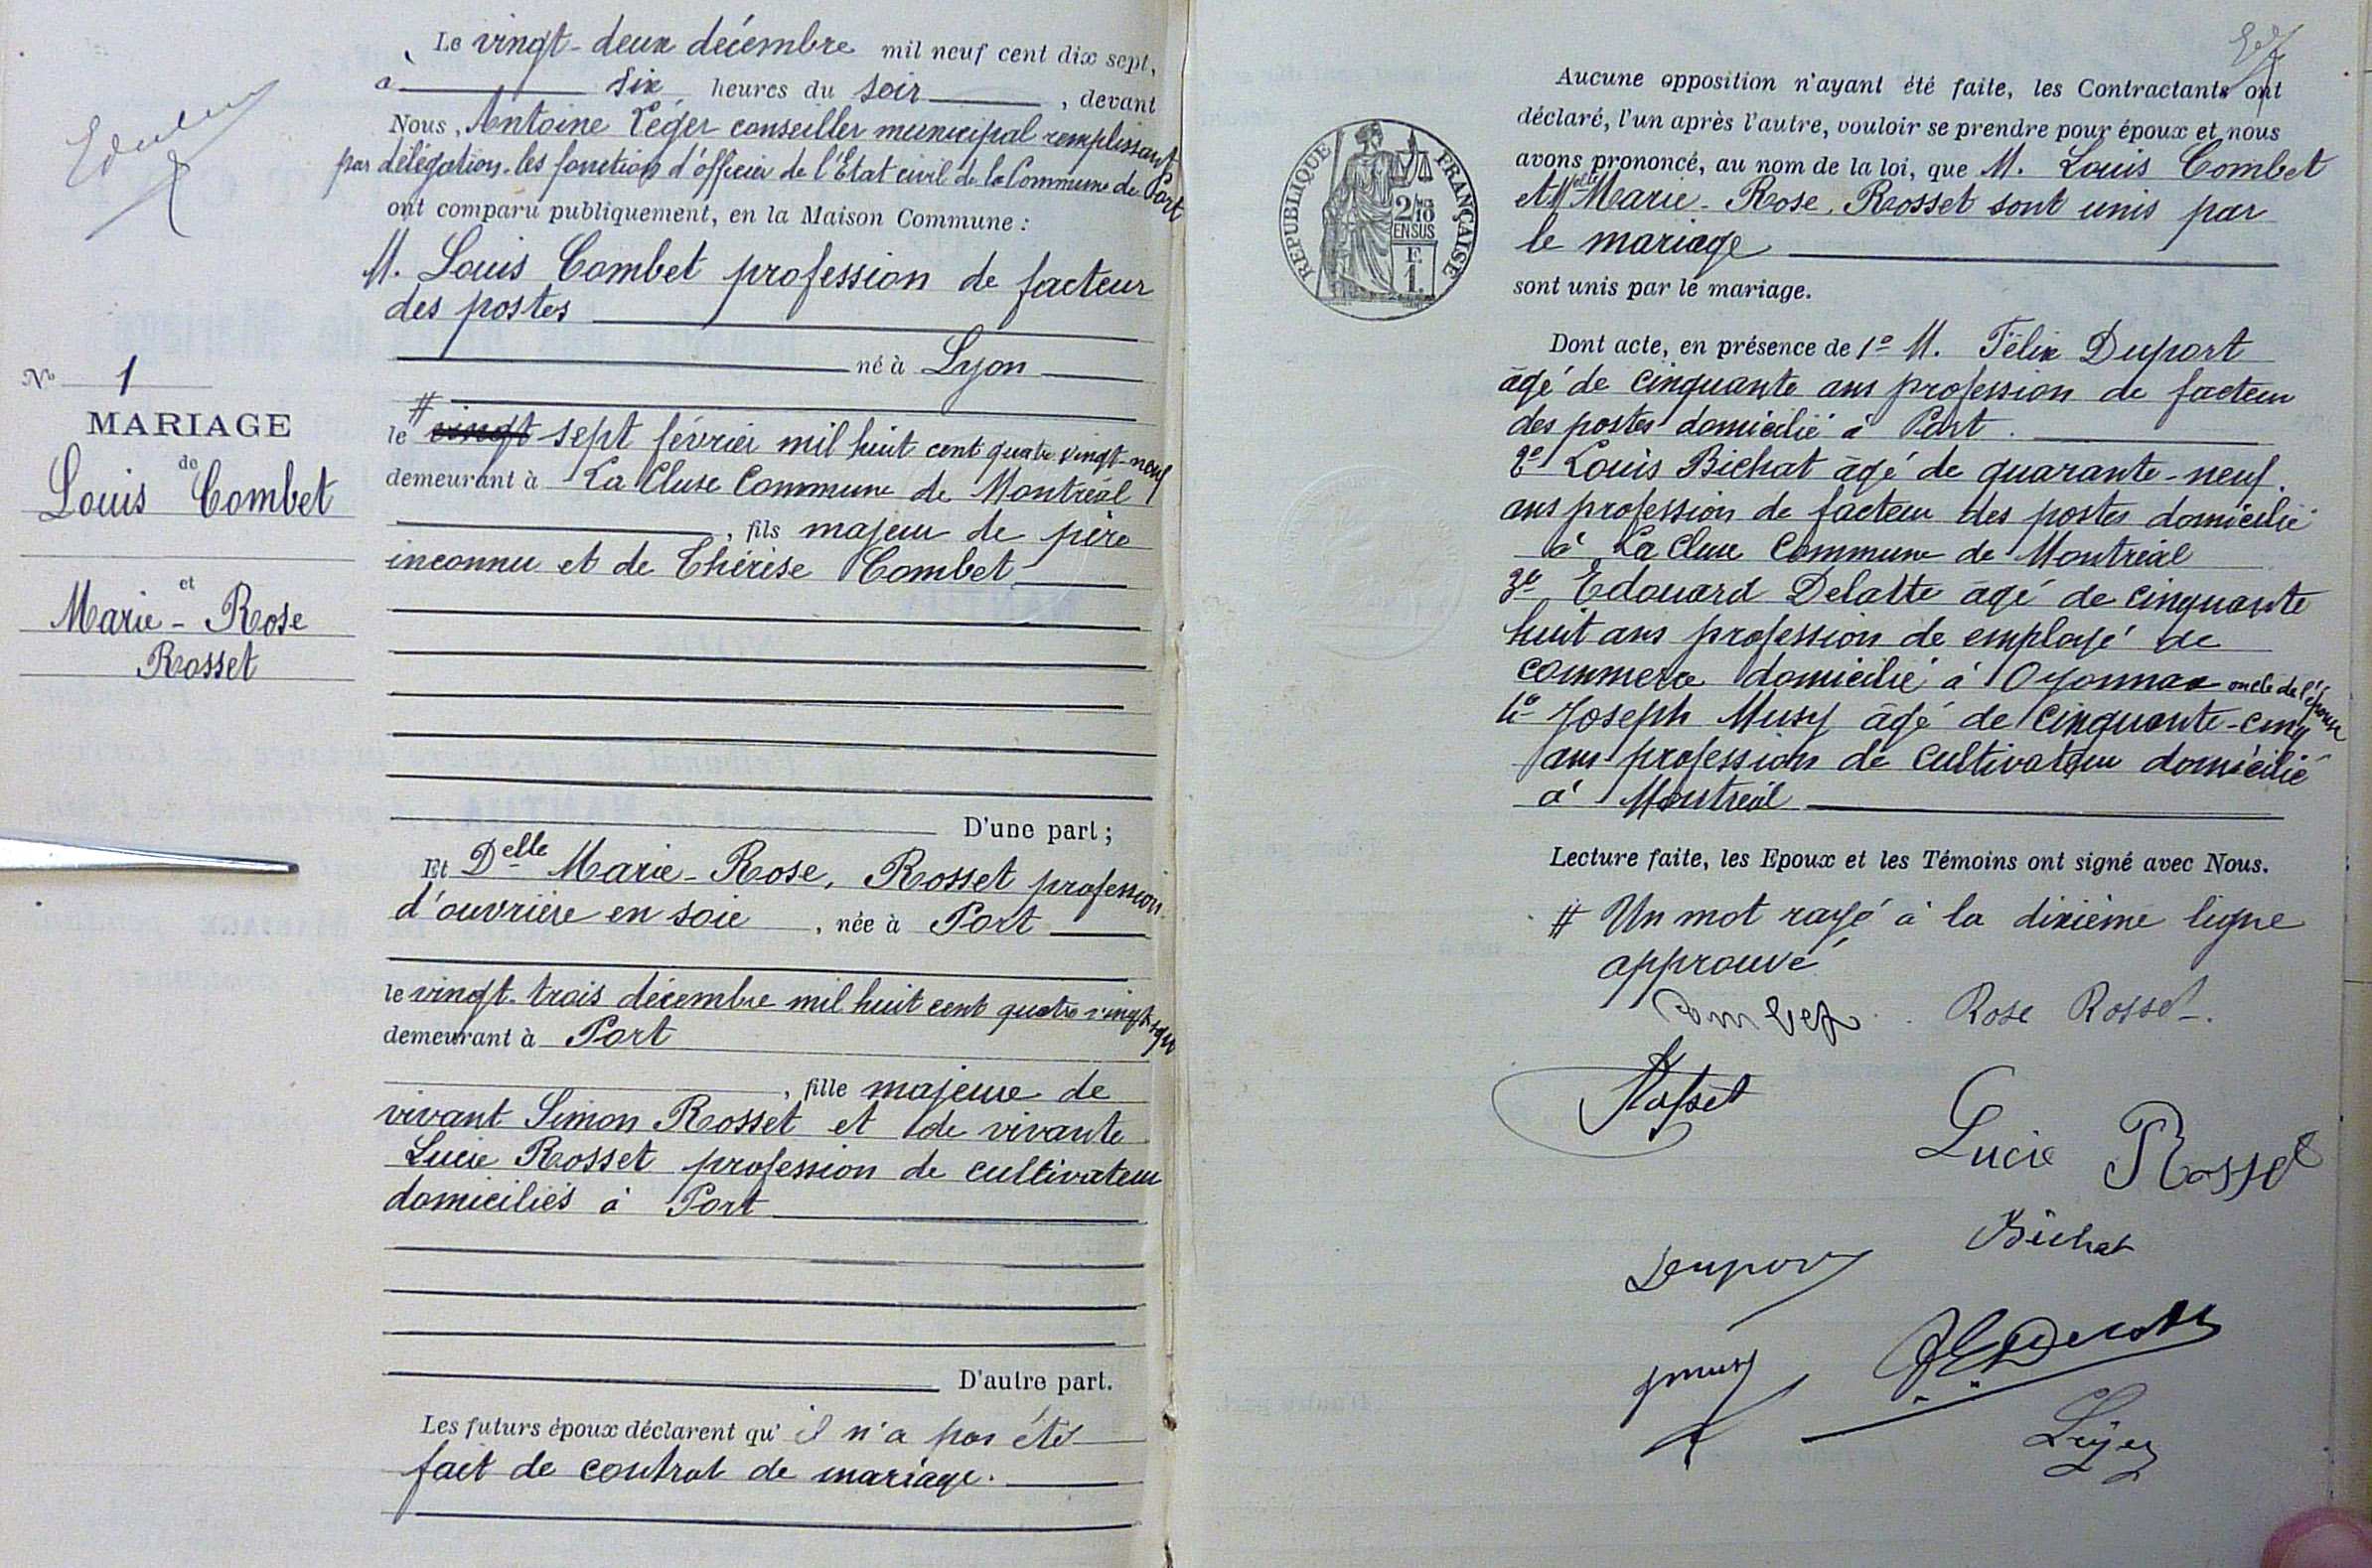 Le vingt-deux décembre mil neuf cent dix sept,
à six heures du soir , devant
Nous, Antoine Léger conseiller municipal remplissant
par délégation les fonctions d'officier de l'Etat civil de la Commune de Port
ont comparu publiquement, en la Maison Commune :
M. Louis Combet profession de facteur
des postes
né à Lyon
#
le vingt sept février mil huit cent quatre vingt-neuf
demeurant à La Cluse Commune de Montréal
, fils majeur de père
inconnu et de Thérèse Combet
D'une part ;
Et Delle Marie-Rose, Rosset profession
d'ouvrière en soie , née à Port
le vingt-trois décembre mil huit cent quatre vingt
demeurant à Port
, fille majeure de
vivant Simon Rosset et de vivante
Lucie Rosset profession de cultivateur
domiciliés à Port
D'autre part.
Les futurs époux déclarent qu' il n'a pas été
fait de contrat de mariage.
N° 1
MARIAGE
de
Louis Combet
et
Marie-Rose
Rosset
REPUBLIQUE FRANÇAISE
2/10
EN SUS
F.
1.
Aucune opposition n'ayant été faite, les Contractants ont
déclaré, l'un après l'autre, vouloir se prendre pour époux et nous
avons prononcé, au nom de la loi, que M. Louis Combet
et Melle Marie-Rose, Rosset sont unis par
le mariage
sont unis par le mariage.
Dont acte, en présence de 1° M. Félix Duport
âgé de cinquante ans profession de facteur
des postes domicilié à Port.
2° Louis Bichat âgé de quarante-neuf
ans profession de facteur des postes domicilié
à La Cluse Commune de Montréal
3° Edouard Delatte âgé de cinquante
huit ans profession de employé de
commerce domicilié à Oyonnax oncle de l'époux
4° Joseph Musy âgé de cinquante-cinq
ans profession de cultivateur domicilié
à Montréal
Lecture faite, les Epoux et les Témoins ont signé avec Nous.
# Un mot rayé à la dixième ligne
approuvé
Combet Rose Rosset
Rosset
Lucie Rosset
Bichat
Duport
Musy
Léger